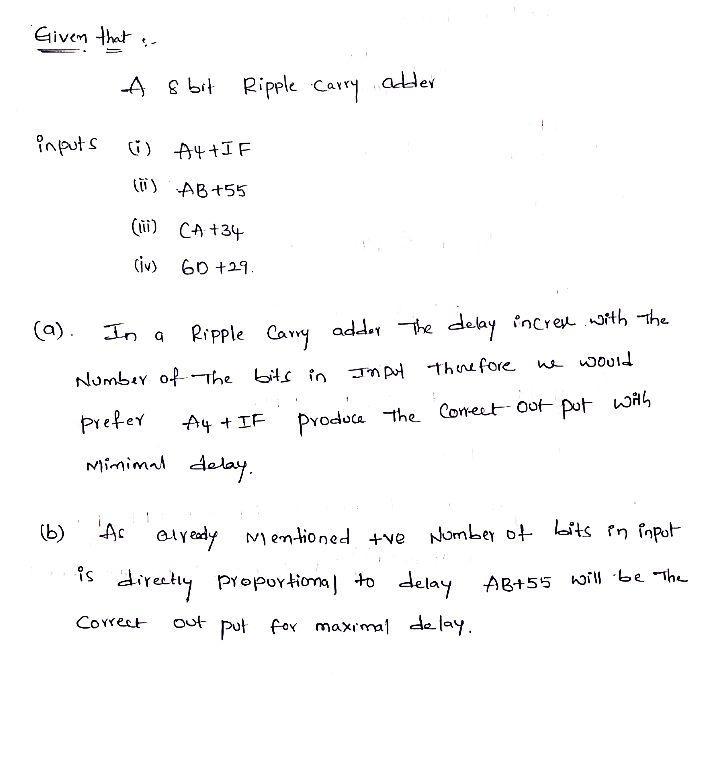 Given that :-
A 8 bit Ripple carry adder
inputs (i) A4+IF
(ii) AB+55
(iii) CA+34
(iv) 6D+29.
(a). In a Ripple Carry adder The delay increx with The
Number of The bits in Input therefore we would
prefer A4+IF produce The Correct out put with
Minimal delay.
(b) As already Mentioned +ve Number of bits in input
is directly proportional to delay AB+55 will be The
Correct out put for maximal delay.